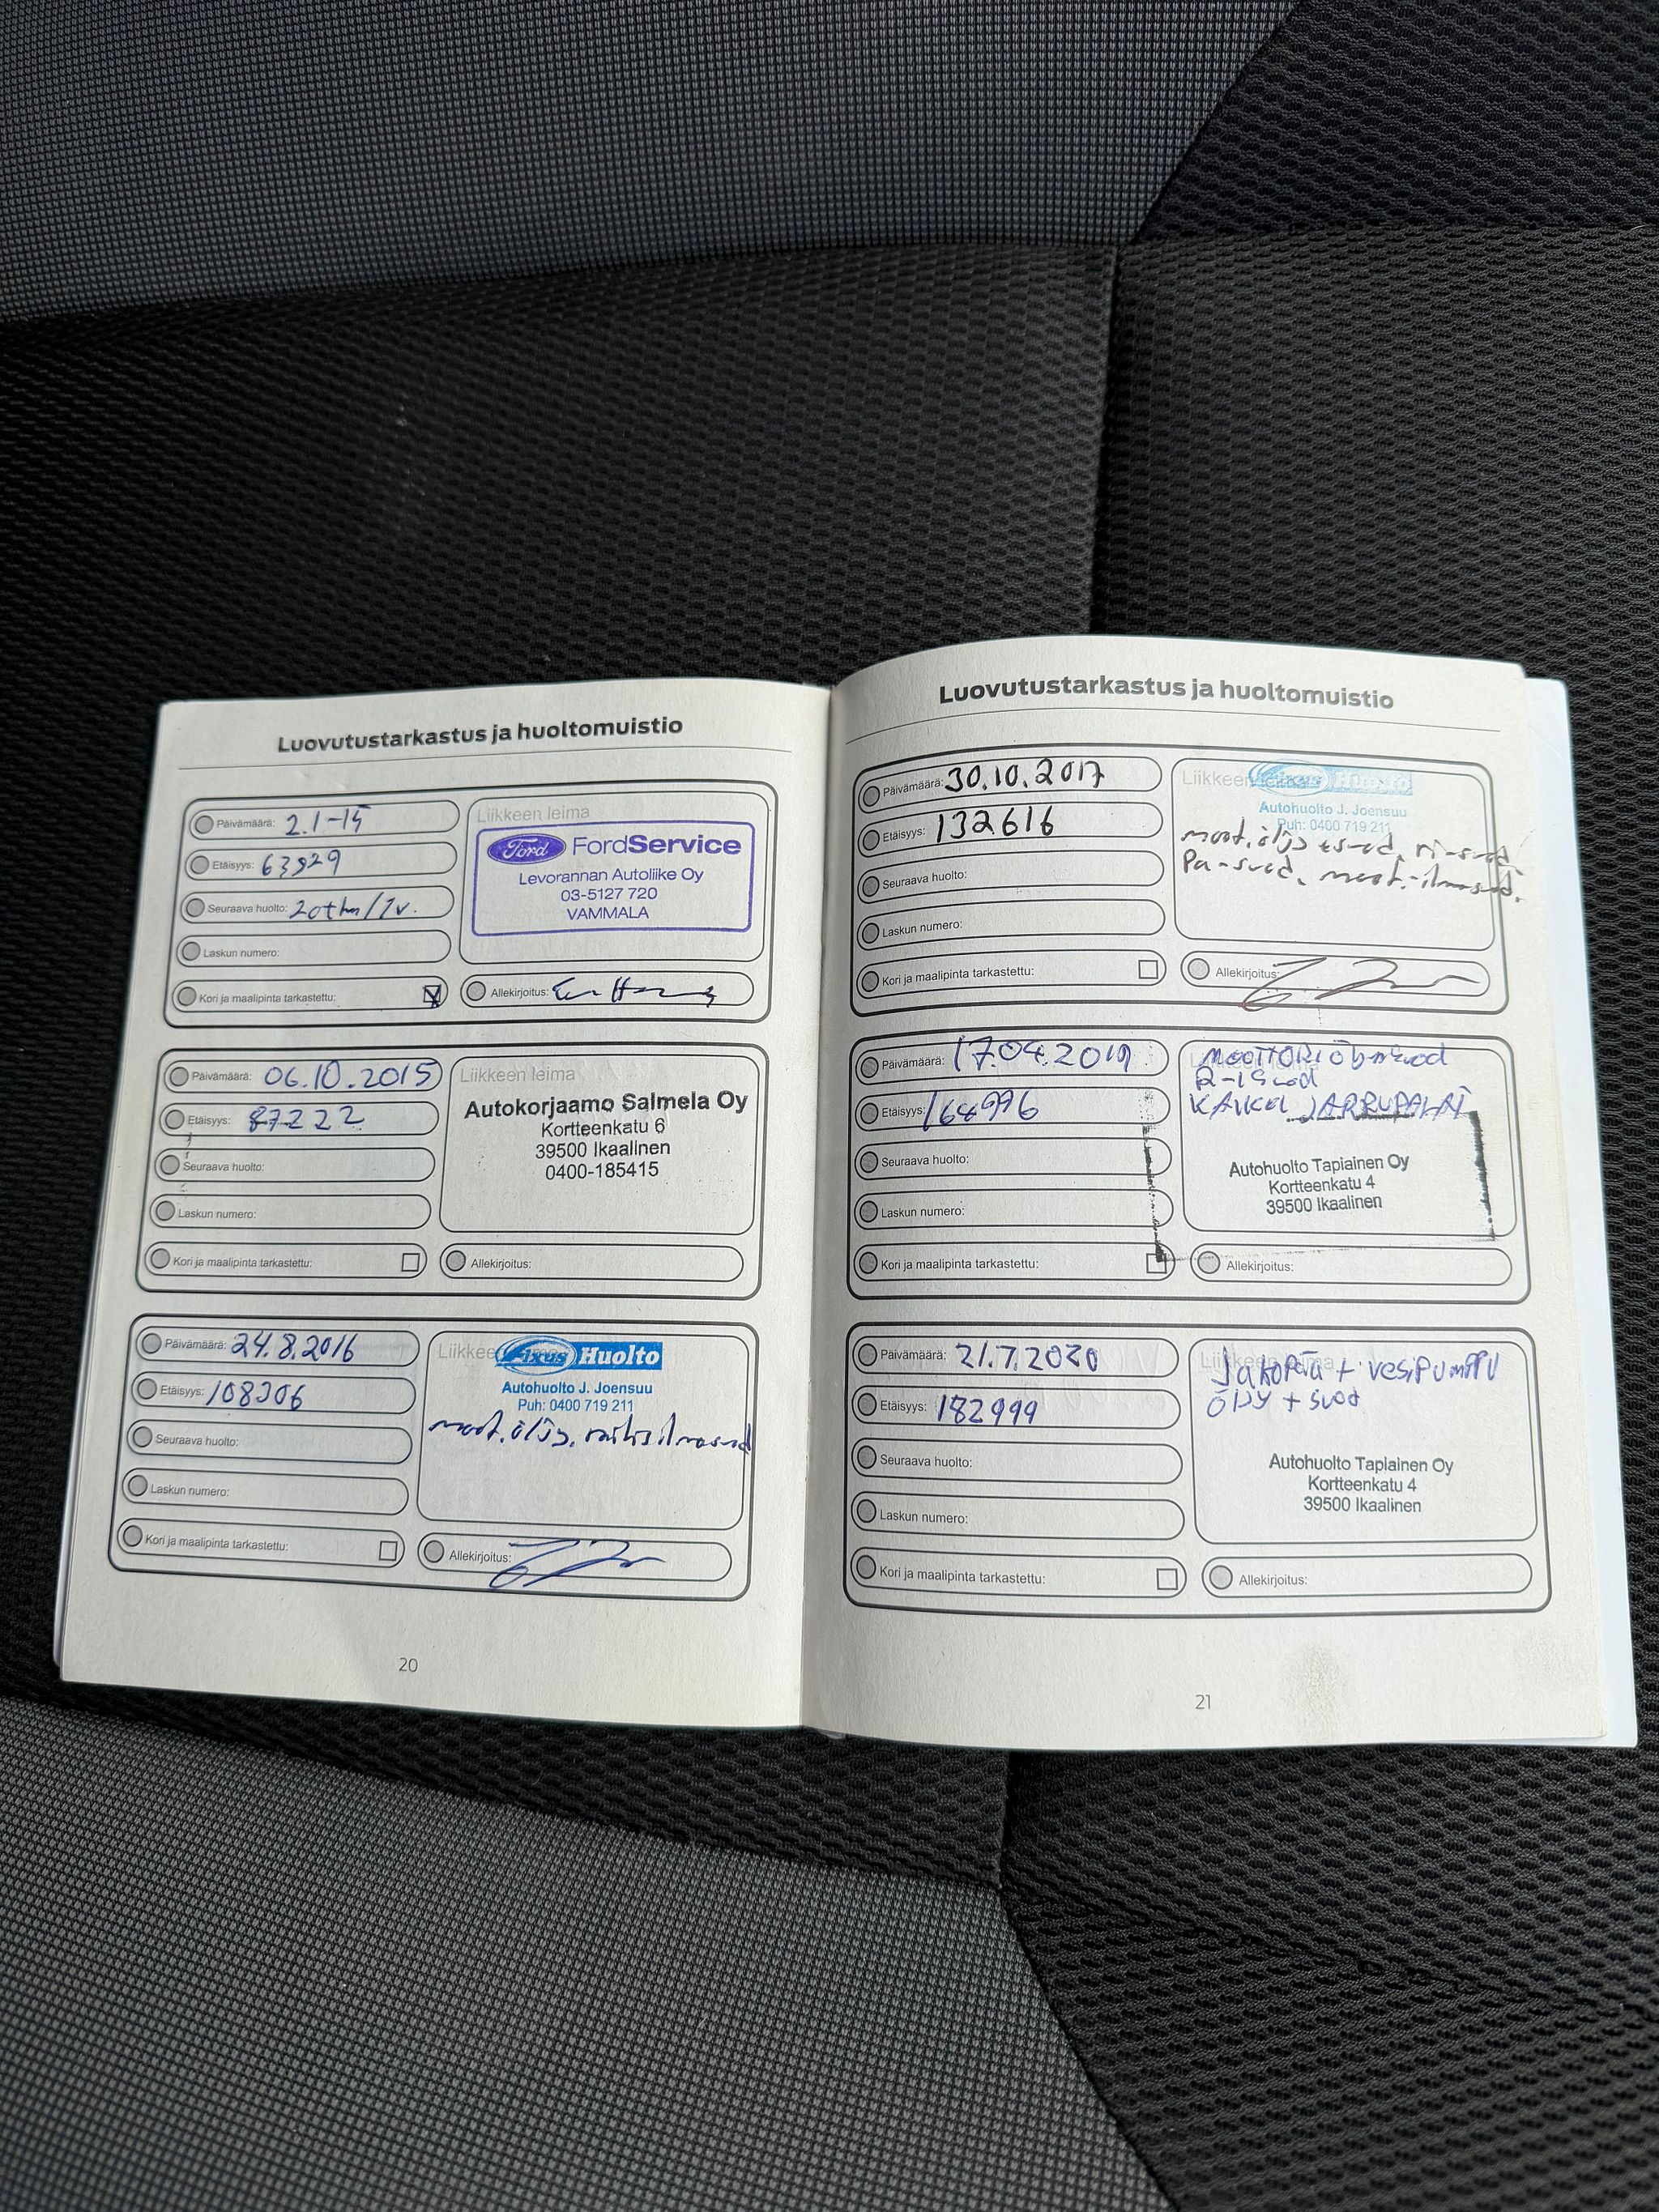 Luovutustarkastus ja huoltomuistio
Päivämäärä: 2.1-15
Etäisyys: 63929
Seuraava huolto: 20tkm/1v.
Laskun numero:
Kori ja maalipinta tarkastettu:
Liikkeen leima
Ford FordService
Levorannan Autoliike Oy
03-5127 720
VAMMALA
Allekirjoitus:
Päivämäärä: 06.10.2015
Etäisyys: 87222
Seuraava huolto:
Laskun numero:
Kori ja maalipinta tarkastettu:
Liikkeen leima
Autokorjaamo Salmela Oy
Kortteenkatu 6
39500 Ikaalinen
0400-185415
Allekirjoitus:
Päivämäärä: 24.8.2016
Etäisyys: 108306
Seuraava huolto:
Laskun numero:
Kori ja maalipinta tarkastettu:
Fixus Huolto
Autohuolto J. Joensuu
Puh: 0400 719 211
moot.öljy,
Allekirjoitus:
20
Luovutustarkastus ja huoltomuistio
Päivämäärä: 30.10.2017
Etäisyys: 132616
Seuraava huolto:
Laskun numero:
Kori ja maalipinta tarkastettu:
Liikkeen leima
Fixus Huolto
Autohuolto J. Joensuu
Puh: 0400 719 211
moot.öljy
Pa-suod. moot.-ilmansuod.
Allekirjoitus:
Päivämäärä: 17.04.2019
Etäisyys: 164996
Seuraava huolto:
Laskun numero:
Kori ja maalipinta tarkastettu:
MOOTTORIÖljy
KAIKKI JARRUPALAT
Autohuolto Tapiainen Oy
Kortteenkatu 4
39500 Ikaalinen
Allekirjoitus:
Päivämäärä: 21.7.2020
Etäisyys: 182999
Seuraava huolto:
Laskun numero:
Kori ja maalipinta tarkastettu:
Liikkeen leima
Jakopää + vesipumppu
öljy + suod
Autohuolto Tapiainen Oy
Kortteenkatu 4
39500 Ikaalinen
Allekirjoitus:
21